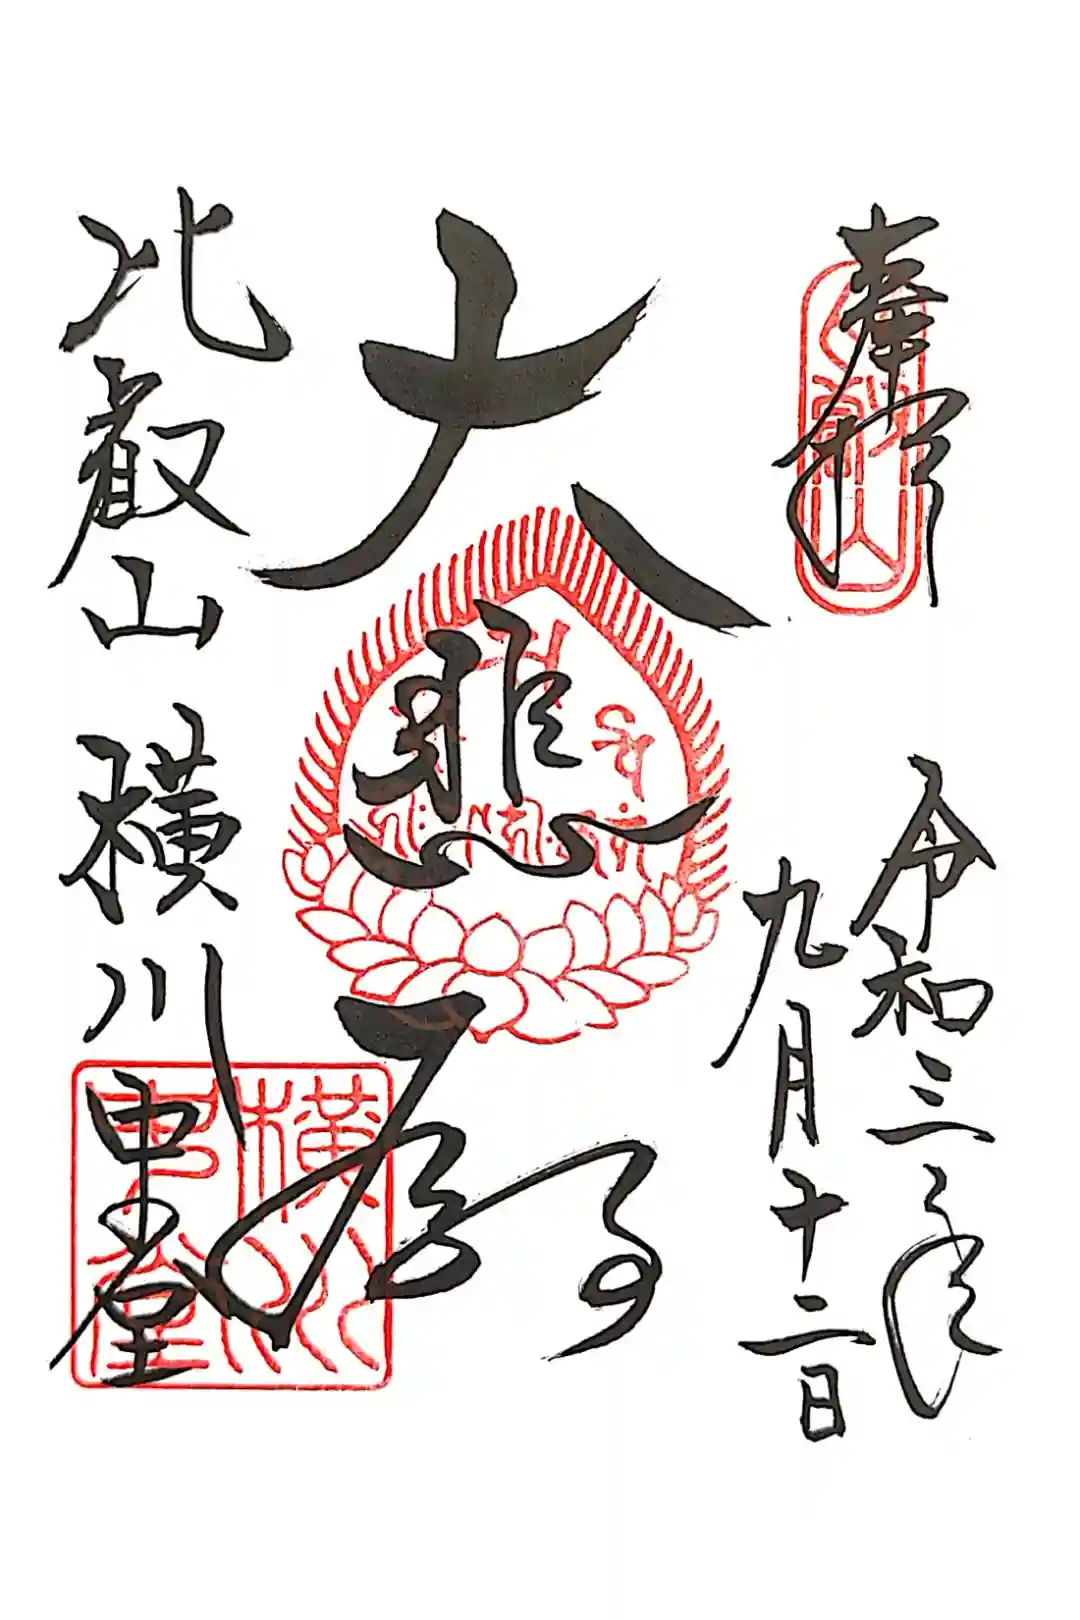 奉拝
令和三年
九月十二日
大悲殿
比叡山 横川中堂
横川
中堂